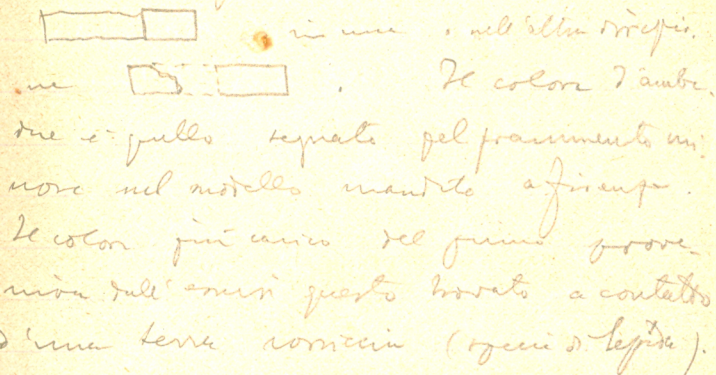 in una o nell'altra direzio-
ne . Il colore d'ambe-
due è quello segnato pel frammento mi-
nore nel modello mandato a Firenze.
Il color più carico del primo prove-
niva dall'essersi questo trovato a contatto
d'una terra rossiccia (specie di lepida).